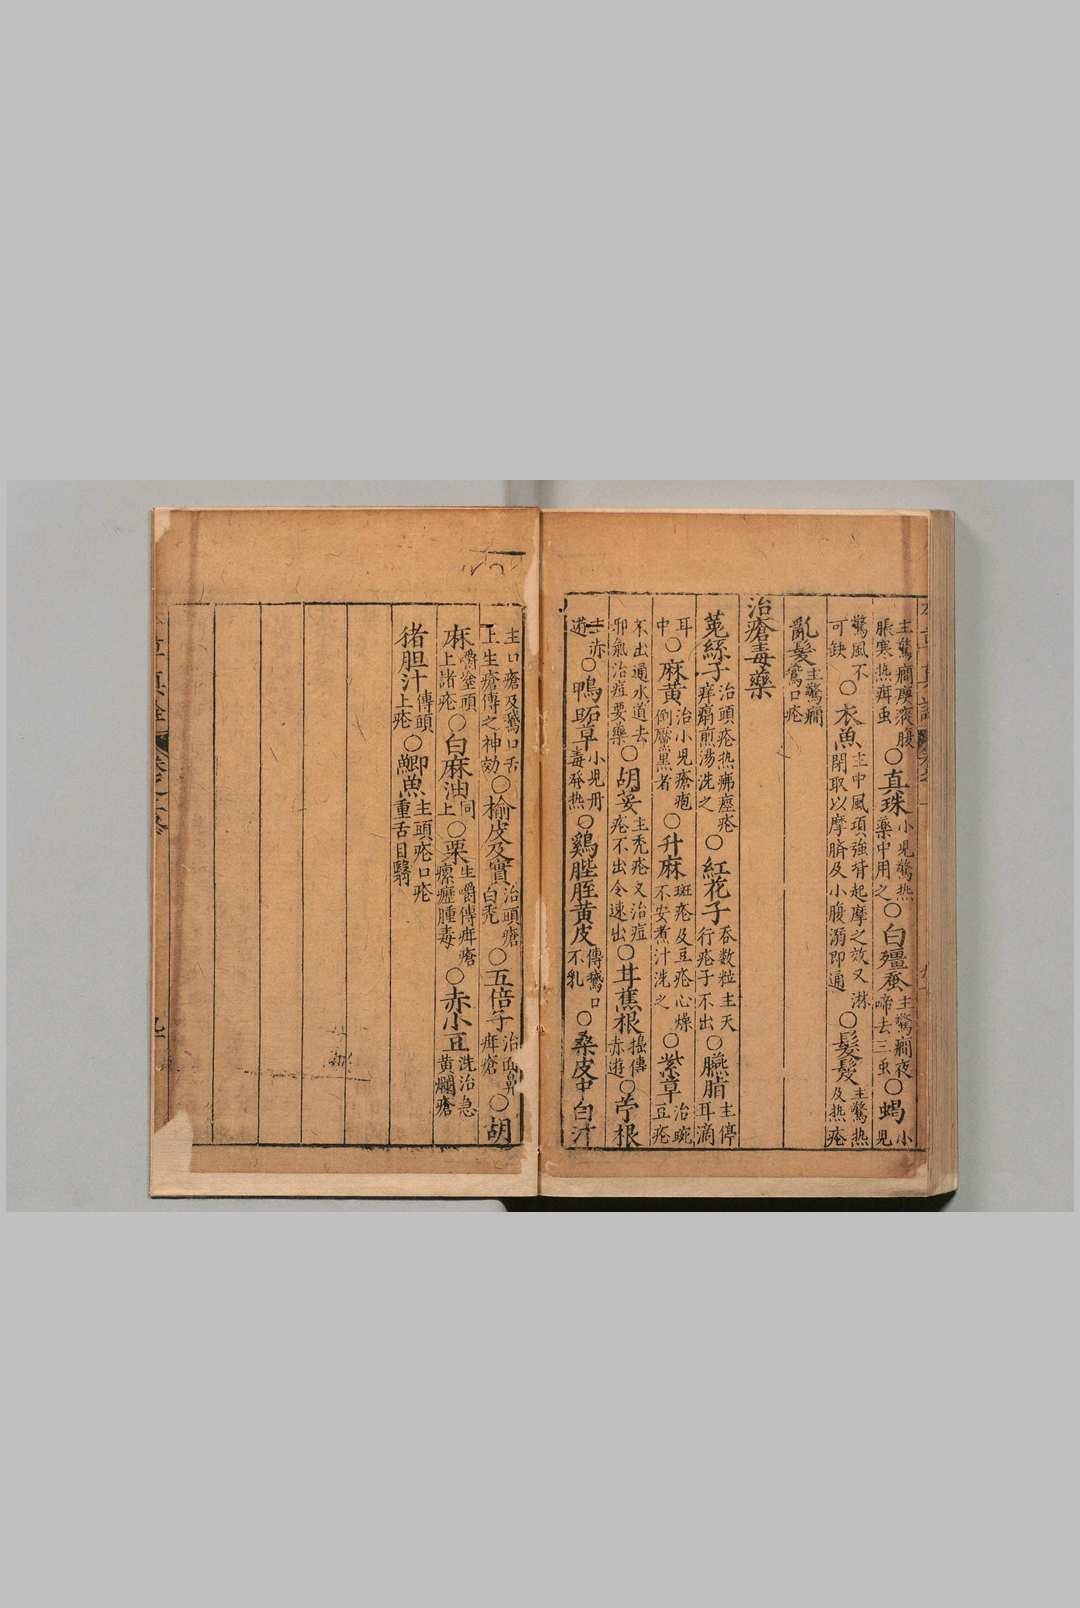 主驚癎瘈瘲腹脹寒热疳虫○真珠小児驚热藥中用之○白殭蚕主驚癎夜啼去三虫○蝎小児
驚風不可缺○衣魚主中風項強背起摩之效又淋閉取以摩臍及小腹溺即通○髮髲主驚热及热疮
亂髮主驚癎驚口疮
治瘡毒藥
菟絲子治頭疮热痱㾦疮痒癎煎湯洗之○紅花子吞数粒主天行疮子不出○臙脂主停耳滴
耳中○麻黄治小児瘡疱倒黶黒者○升麻斑疮及豆疮心燥不安煮汁洗之○紫草治豌豆疮
不出通水道去邪氣治痘要藥○胡荽主禿疮又治痘疮不出令速出○甘蕉根搗傳赤遊○苧根
主赤遊○鴨跖草小児丹毒發热○鷄䏶胵黄皮傳鵞口不乳○桑皮中白汁
主口瘡及鵞口舌上生瘡傳之神効○榆皮及實治頭瘡白禿○五倍子治面鼻疳瘡○胡
麻嚼塗頭上諸疮○白麻油同上○栗生嚼傳疳瘡瘰癧腫毒○赤小豆洗治急黄爛瘡
猪胆汁傳頭上疮○鯽魚主頭疮口疮重舌目翳